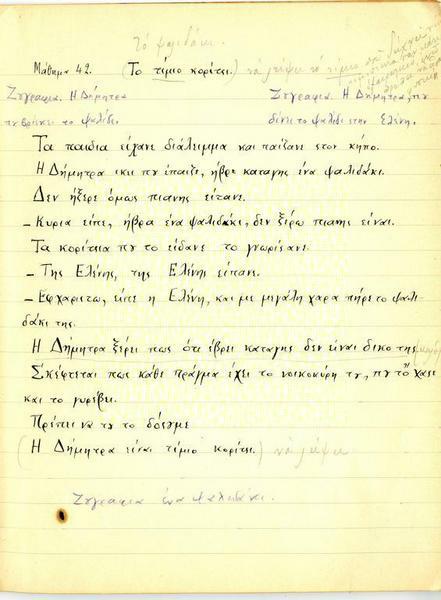 Το ψαλιδάκι.
Μάθημα 42. (Το τίμιο κορίτσι.) να λείψει το τίμιο
Ζωγραφια. Η Δήμητρα Ζωγραφια. Η Δήμητρα, που
που βρίσκει το ψαλίδι. δίνει το ψαλίδι στην Ελένη.
Τα παιδια είχανε διάλειμμα και παίζανε στον κήπο.
Η Δήμητρα εκει που έπαιζε, ήβρε καταγης ένα ψαλιδάκι.
Δεν ήξερε όμως πιανης είτανε.
– Κυρια είπε, ήβρα ένα ψαλιδάκι, δεν ξέρω πιανης είναι.
Τα κορίτσια που το είδανε το γνωρίσανε.
– Της Ελένης, της Ελένης είπανε.
– Εφχαριστω, είπε η Ελένη, και με μεγάλη χαρα πήρε το ψαλι-
δάκι της.
Η Δήμητρα ξέρει πως ότι έβρει καταγης δεν είναι δικο της
Σκέφτεται πως κάθε πράγμα έχει το νοικοκύρη του, που το χασε
και το γυρέβει.
Πρέπει να του το δόσουμε
(Η Δήμητρα είναι τίμιο κορίτσι.) να λείψει
Ζωγραφια ένα ψαλιδάκι.